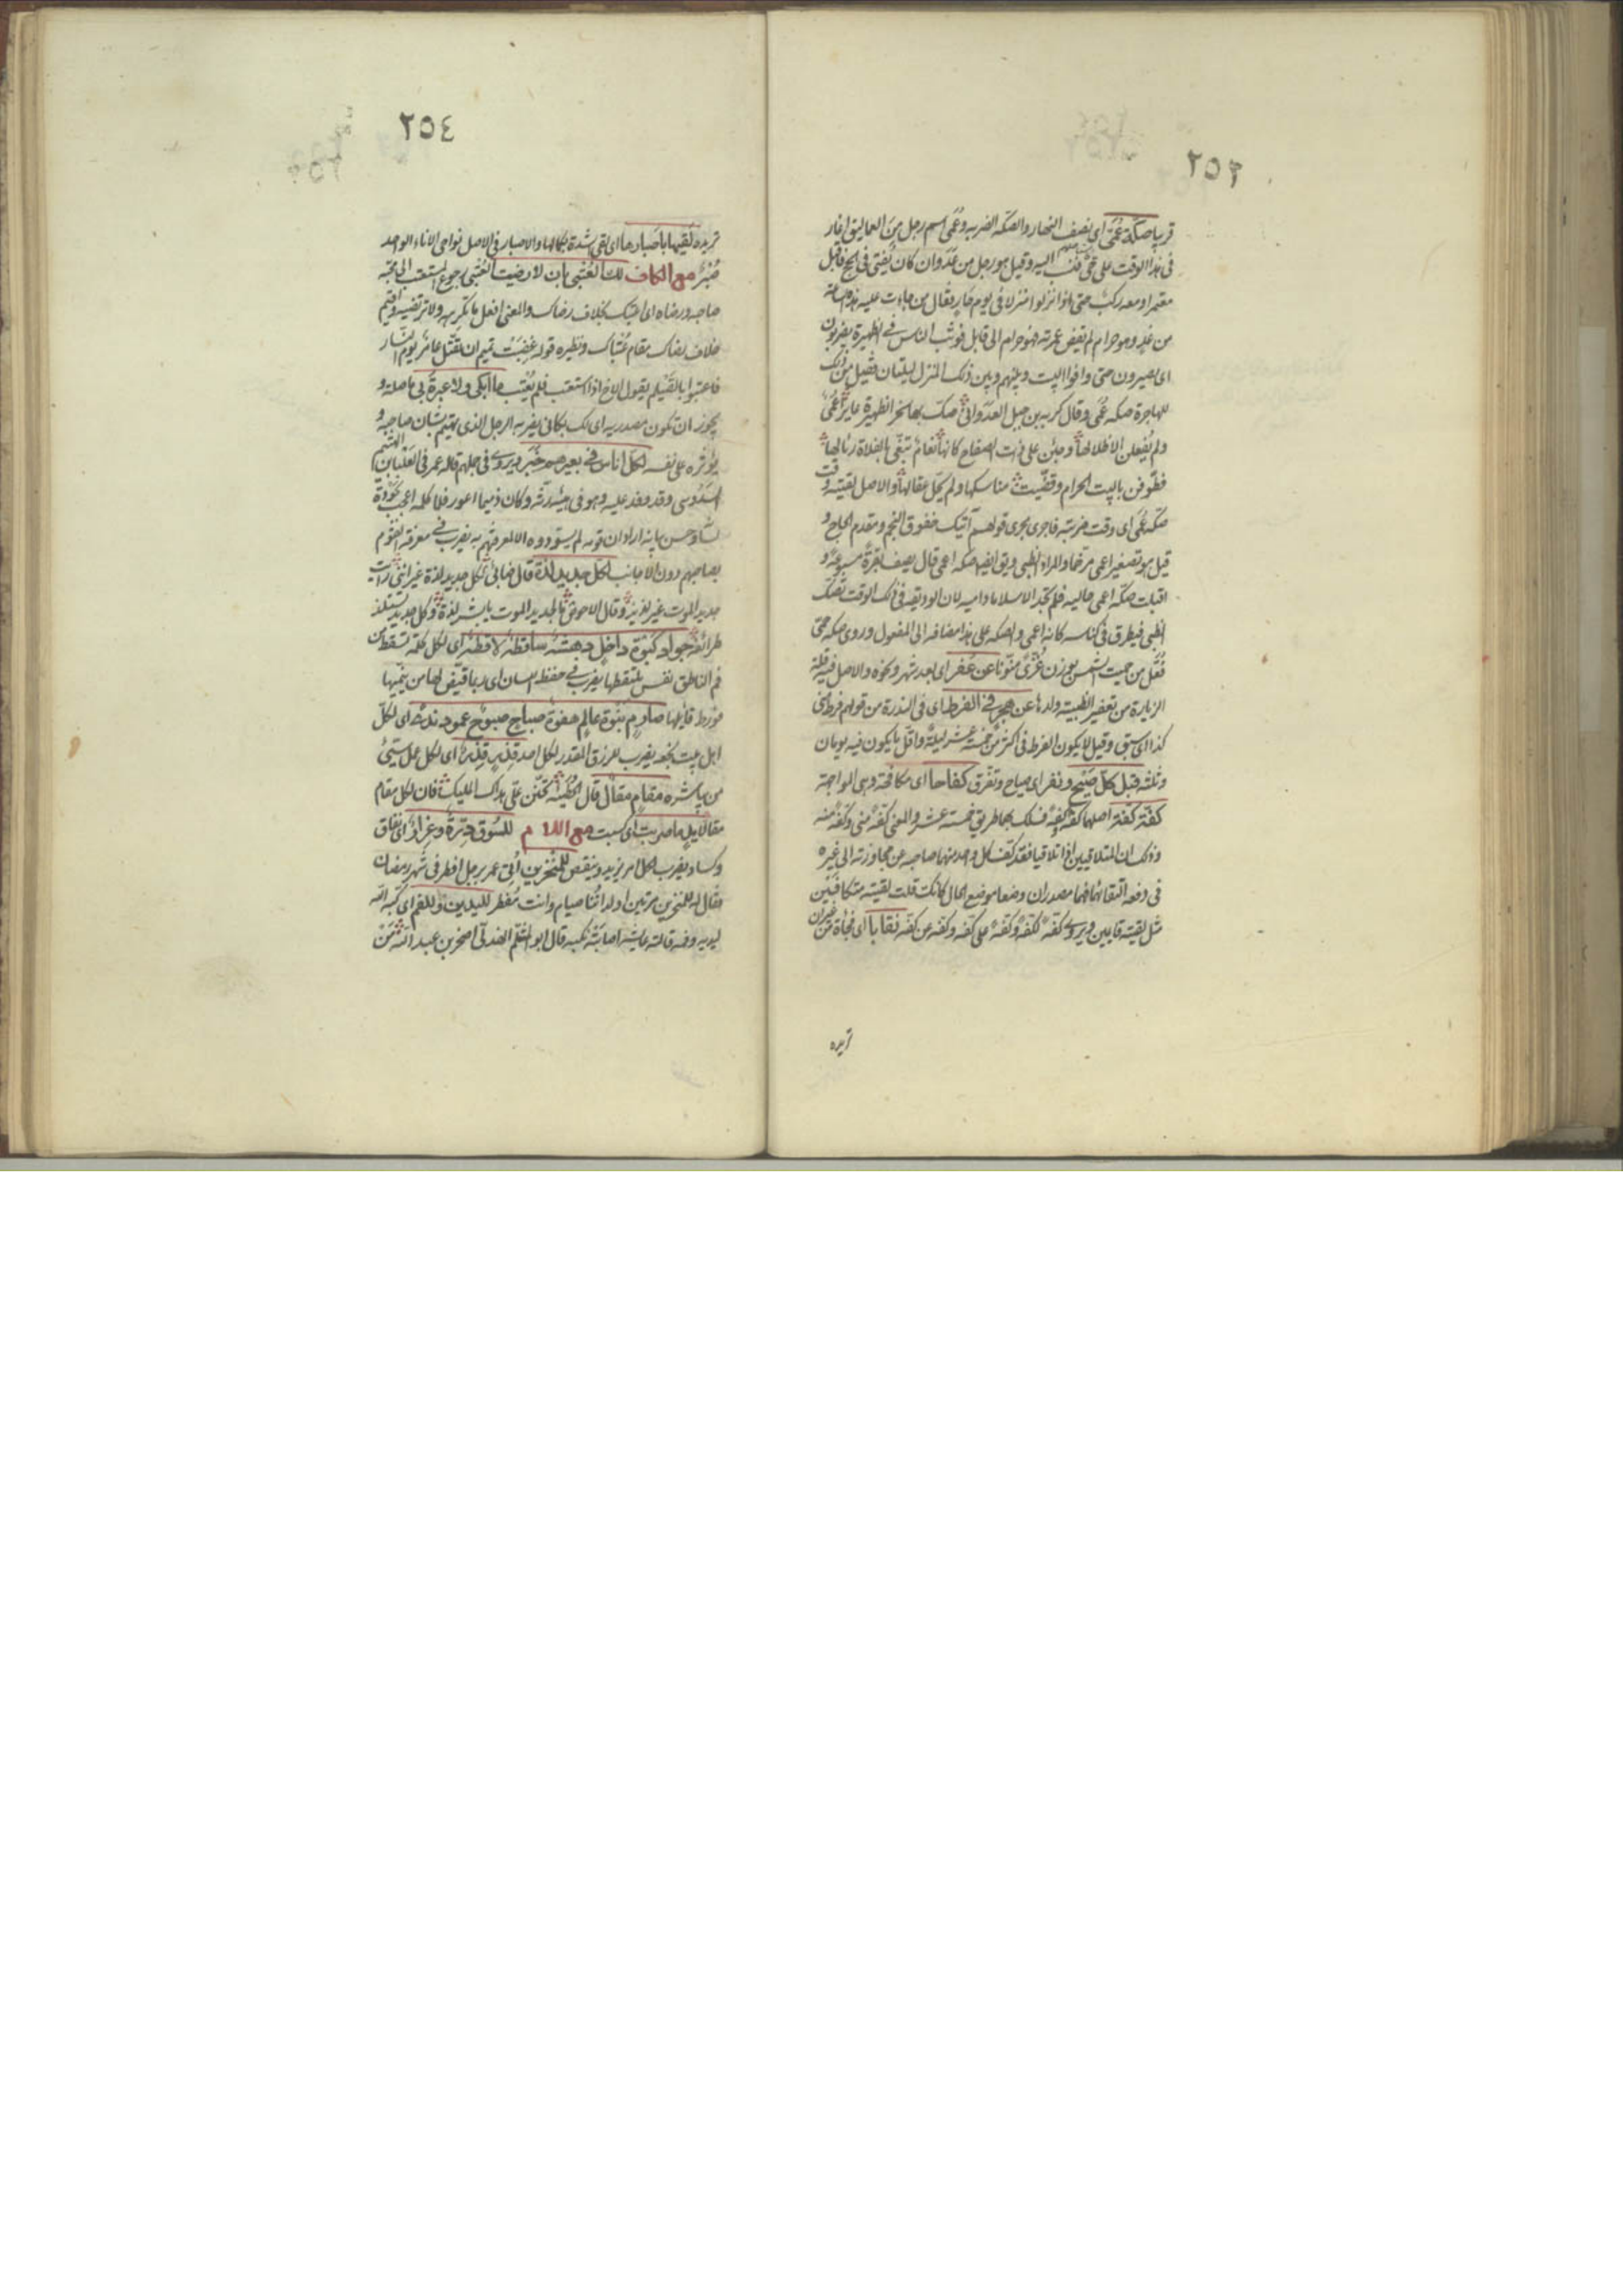 ٢٥٣
قريبا صكة عمى اى نصف النهار والصكة الضربة وعمى اسم رجل من العماليق اغار
فى هذا الوقت على قوم فنسب اليه وقيل هو رجل من عدوان كان يفتى فى الحج فاقبل
معتمرا ومعه ركب حتى اذا نزلوا منزلا فى يوم حار فقال من جاءت عليه هذه الساعة
من غد وهو حرام لم يقض عمرته فهو حرام الى قابل فوثب الناس فى الظهيرة يضربون
اى يسيرون حتى وافوا البيت وبينهم وبين ذلك المنزل ليلتان فقيل من ذلك
للهاجرة صكة عمى وقال كرب بن جبل العدوانى صك بها نحر الظهيرة غايرا عمى
ولم ينعلن الا ظلالها وجئن على ذات الصفاح كانها نعام تبغى بالفلاة رئالها
فطوفن بالبيت الحرام وقضيت مناسكها ولم يحل عقالها والاصل لقيته وقت
صكة عمى اى وقت ضربته فاجرى مجرى قولهم آتيك خفوق النجم ومقدم الحاج و
قيل هو تصغير اعمى مرخما والمراد الظبى ويق ايضا صكة اعمى قال يصف بقرة مسبوعة و
اقبلت صكة اعمى خالية فلم تجد الا سلاما دامية لان الوديقة فى ذلك الوقت تصك
الظبى فيطرق فى كناسه كانه اعمى والصكة على هذا مضافة الى المفعول وروى صكة حمى
فعل من حميت الشمس بوزن غزى منونا عن عفر اى بعد شهر ونحوه والاصل فيه قلة
الزيارة من تعفير الظبية ولدها عن هجر فى الفرط اى فى الندرة من قولهم فرط منى
كذا اى سبق وقيل لا يكون الفرط فى اكثر من خمسة عشر ليلة واقل ما يكون فيه يومان
وثلثة قبل كل صيح ونفر اى صياح وتفرق كفاحا اى مكافحة وهى المواجهة
كفة كفة اصلها كفة لكفة فسلك بهما طريق خمسة عشر والمعنى كفة منى وكفة منه
وذلك ان المتلاقيين اذا تلاقيا فقد كف كل واحد منهما صاحبه عن مجاوزته الى غيره
فى دفعة التقائهما فهما مصدران وضعا موضع الحال كانك قلت لقيته متكافين
مثل لقيته قايمين ويروى كفة لكفة وكفة على كفة وكفة عن كفة نقابا اى فجاة من غير ان
تريده
٢٥٤
تريده لقيها باصبارها اى لقى شدة بكمالها والاصبار فى الاصل نواحى الاناء الواحد
صبر مع الكاف لك العتبى بان لا رضيت العتبى رجوع المستعتب الى محبة
صاحبه ورضاه اى اعتبك بخلاف رضاك والمعنى افعل ما تكرهه ولا ترتضيه واقيم
خلاف رضاك مقام عتباك ونظيره قوله غضبت تميم ان تقتل عامر يوم النسار
فاعتبوا بالصيلم يقول الاخ اذا استعتب فلم يعتب ما ابكى ولا عبرة بى ما صلة و
يجوز ان تكون مصدرية اى لك بكائى يضربه الرجل الذى يهتم بشان صاحبه و
يؤثره على نفسه لكل اناس فى بعيرهم خبر ويروى فى جملهم قاله عمر فى العلباء بن الهيثم
السدوسى وقد وفد عليه وهو فى هيئة رثة وكان ذميما اعور فلما كلمه اعجب بجودة
لسانه وحسن بيانه اراد ان قومه لم يسودوه الا لمعرفتهم به يضرب فى معرفة القوم
بصاحبهم دون الاجانب لكل جديد لذة قال ضابئ لكل جديد لذة غير اننى رايت
جديد الموت غير لذيذ وقال الاحوص ما لجديد الموت يا بشر لذة وكل جديد تستلذ
طرائفه جواد كبوة داخل دهشة ساقطة لاقطة اى لكل كلمة تسقط من
فم الناطق نفس تلتقطها يضرب فى حفظ اللسان اى ربما قيض لها من ينميها
فورط قايلها صارم نبوة عالم هفوة صباح صبوح عمود ندى اى لكل
اهل بيت نجعة يضرب للرزق المقدر لكل احد قذير قذير اى لكل عمل سيئ
من باشره مقام مقال قال الحطيئة تحنن على هداك المليك فان لكل مقام
مقالا يد ما ضربت اى كسبت مع اللام للسوق درة وغرار اى نفاق
وكساد يضرب لكل امر يزيد وينقص للمنخرين اتى عمر برجل افطر فى شهر رمضان
فقال له للمنخرين مرتين اولداننا صيام وانت مفطر لليدين وللفم اى كبه الله
ليديه وفمه قالته عايشة اصابته نكبة قال ابو المثلم الهذلى اصخر بن عبد الله من